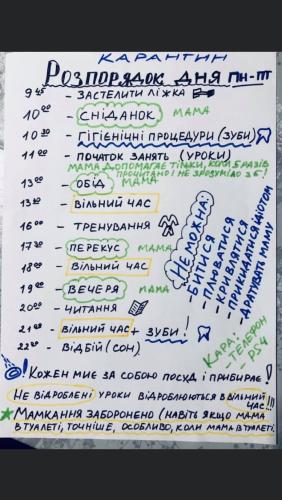 КАРАНТИН
РОЗПОРЯДОК ДНЯ ПН-ПТ
9⁴⁵ - ЗАСТЕЛИТИ ЛІЖКА
10⁰⁰ - СНІДАНОК МАМА
10³⁰ - ГІГІЄНІЧНІ ПРОЦЕДУРИ (ЗУБИ)
11⁰⁰ - ПОЧАТОК ЗАНЯТЬ (УРОКИ)
МАМА ДОПОМАГАЄ ТІЛЬКИ, КОЛИ 5 РАЗІВ
ПРОЧИТАНО І НЕ ЗРОЗУМІЛО
13⁰⁰ - ОБІД МАМА
13³⁰ - ВІЛЬНИЙ ЧАС
16⁰⁰ - ТРЕНУВАННЯ
17³⁰ - ПЕРЕКУС МАМА
18⁰⁰ - ВІЛЬНИЙ ЧАС
19⁰⁰ - ВЕЧЕРЯ МАМА
20⁰⁰ - ЧИТАННЯ
21⁰⁰ - ВІЛЬНИЙ ЧАС + ЗУБИ!
22⁰⁰ - ВІДБІЙ (СОН)
НЕ МОЖНА:
- БИТИСЯ
- ПЛЮВАТИСЯ
- КРИВЛЯТИСЯ
- ПРИКИДАТИСЯ ІДІОТОМ
- ДРАТУВАТИ МАМУ
КАРА:
- ТЕЛЕФОН
- PS4
! КОЖЕН МИЄ ЗА СОБОЮ ПОСУД І ПРИБИРАЄ!
НЕ ВІДРОБЛЕНІ УРОКИ ВІДРОБЛЮЮТЬСЯ В ВІЛЬНИЙ
ЧАС!!!
МАМКАННЯ ЗАБОРОНЕНО (НАВІТЬ ЯКЩО МАМА
В ТУАЛЕТІ, ТОЧНІШЕ, ОСОБЛИВО, КОЛИ МАМА В ТУАЛЕТІ.